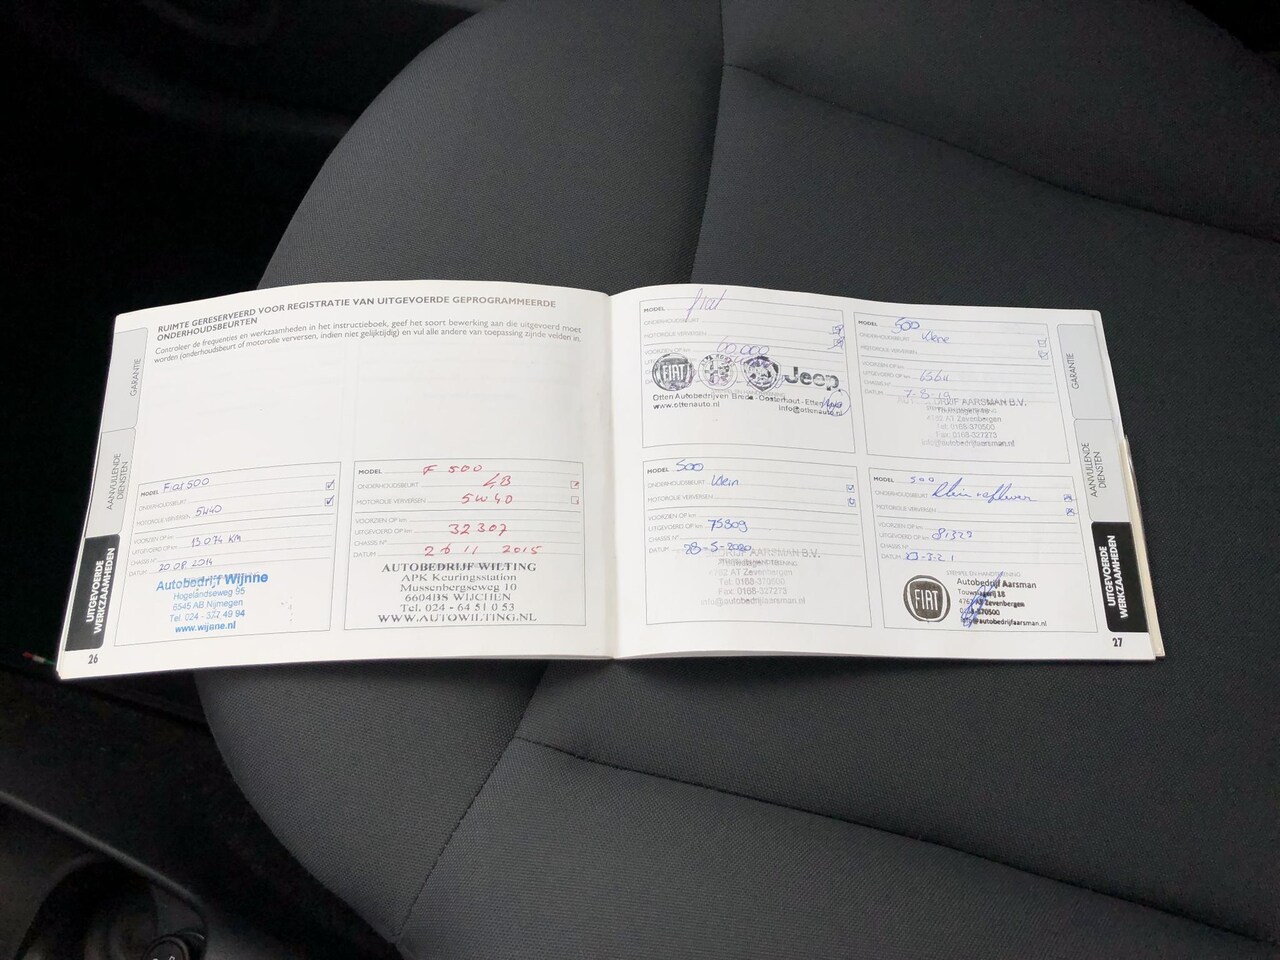 RUIMTE GERESERVEERD VOOR REGISTRATIE VAN UITGEVOERDE GEPROGRAMMEERDE
ONDERHOUDSBEURTEN
Controleer de frequenties en werkzaamheden in het instructieboek, geef het soort bewerking aan die uitgevoerd moet
worden (onderhoudsbeurt of motorolie verversen, indien niet gelijktijdig) en vul alle andere van toepassing zijnde velden in.
GARANTIE
AANVULLENDE
DIENSTEN
UITGEVOERDE
WERKZAAMHEDEN
MODEL Fiat 500
ONDERHOUDSBEURT
MOTOROLIE VERVERSEN 5W40
VOORZIEN OP km
UITGEVOERD OP km 13.074 KM
CHASSIS N°
DATUM 20.08.2014
Autobedrijf Wijnne
Hogelandseweg 95
6545 AB Nijmegen
Tel. 024 - 377 49 94
www.wijnne.nl
26
MODEL F 500
ONDERHOUDSBEURT
MOTOROLIE VERVERSEN 5W40
VOORZIEN OP km
UITGEVOERD OP km 32307
CHASSIS N°
DATUM 26 11 2015
AUTOBEDRIJF WILTING
APK Keuringsstation
Mussenbergseweg 10
6604BS WIJCHEN
Tel. 024 - 64 51 0 53
WWW.AUTOWILTING.NL
MODEL fiat
ONDERHOUDSBEURT
MOTOROLIE VERVERSEN
VOORZIEN OP km 60.000
FIAT
Jeep
Otten Autobedrijven Breda - Oosterhout - Etten
www.ottenauto.nl info@ottenauto.nl
MODEL 500
ONDERHOUDSBEURT Kleine
MOTOROLIE VERVERSEN
VOORZIEN OP km
UITGEVOERD OP km 65611
CHASSIS N°
DATUM 7-5-19
DRIJF AARSMAN B.V.
AT Zevenbergen
Tel. 0168-370500
Fax. 0168-327273
info@autobedrijfaarsman.nl
MODEL 500
ONDERHOUDSBEURT Klein
MOTOROLIE VERVERSEN
VOORZIEN OP km
UITGEVOERD OP km 75809
CHASSIS N°
DATUM 28-5-2020
DRIJF AARSMAN B.V.
AT Zevenbergen
Tel. 0168-370500
Fax. 0168-327273
info@autobedrijfaarsman.nl
MODEL 500
ONDERHOUDSBEURT
MOTOROLIE VERVERSEN
VOORZIEN OP km
UITGEVOERD OP km 81329
CHASSIS N°
DATUM
STEMPEL EN HANDTEKENING
FIAT
Autobedrijf Aarsman
Touwslagerij 18
AT Zevenbergen
0168-370500
info@autobedrijfaarsman.nl
GARANTIE
AANVULLENDE
DIENSTEN
UITGEVOERDE
WERKZAAMHEDEN
27